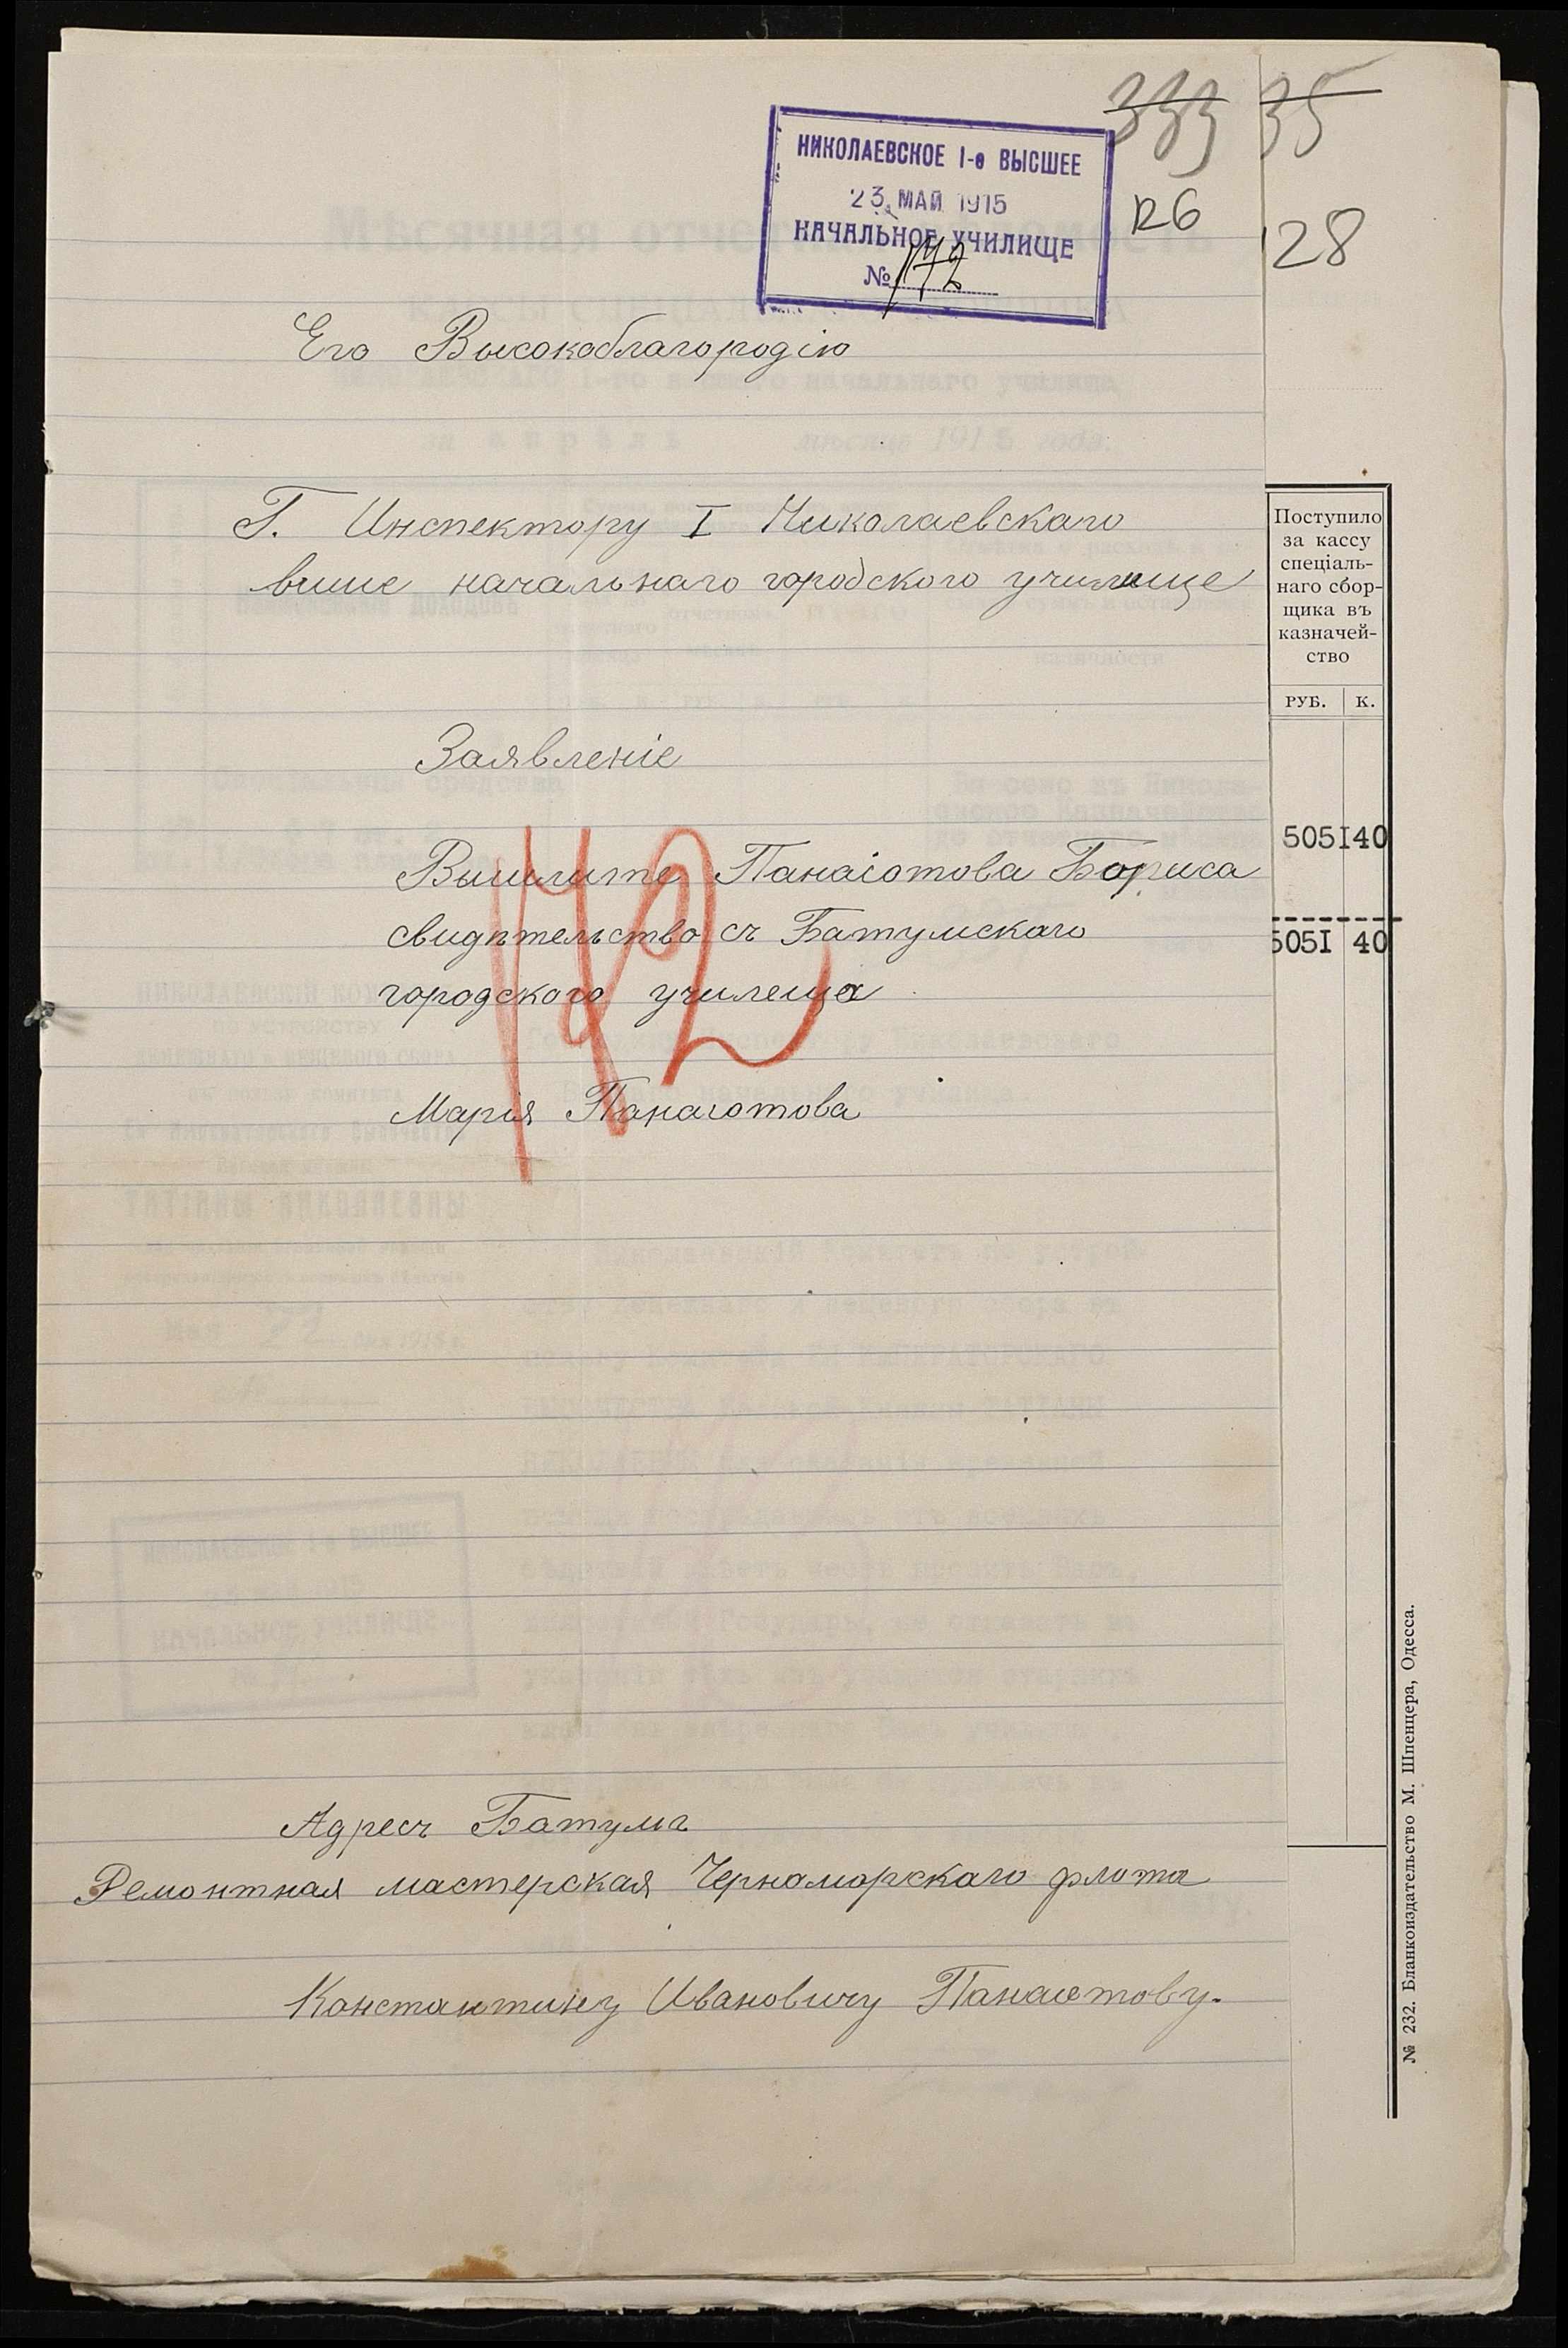 333 35
НИКОЛАЕВСКОЕ I-е ВЫСШЕЕ
23 МАЙ 1915
НАЧАЛЬНОЕ УЧИЛИЩЕ
№ 172
126
28
Его Высокоблагородію
Г. Инспектору I Николаевскаго
выше начальнаго городского училище
Заявленіе
Вышлите Панаіотова Бориса
свидѣтельство съ Батумскаго
городского училеща
172
Марія Панаіотова
Адресъ Батумъ
Ремонтная мастерская Черноморскаго флота
Константину Ивановичу Панаіотову.
Поступило
за кассу
спеціаль-
наго сбор-
щика въ
казначей-
ство
РУБ. К.
505I 40
505I 40
№ 232. Бланкоиздательство М. Шпенцера, Одесса.